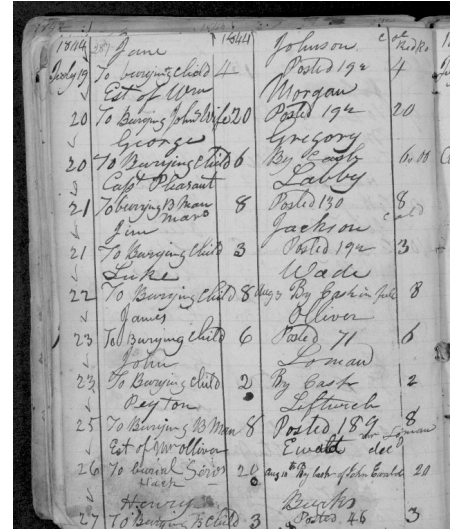 1844 Jane 1844 Johnson
July 19 To burying child 4 Posted 192 4
Est of Wm Morgan
20 To Burying John's Wife 20 Posted 192 20
George Gregory
20 To Burying Child 6 By Cash 6
Capt Pleasant Labby
21 To burying B Man 8 Posted 130 8
Jim Jackson
21 To Burying Child 3 Posted 192 3
Luke Wade
22 To Burying Child 8 Aug 3 By Cash in full 8
James Olliver
23 To Burying child 6 Posted 71 6
John Loman
23 To Burying child 2 By Cash 2
Peyton Leftwich
25 To Burying B Man 8 Posted 189 8
Est of Mr Olliver Ewald dec
26 To burial 20 Aug By Cash of John Ewald 20
Henry Burks
27 To Burying B child 3 Posted 46 3